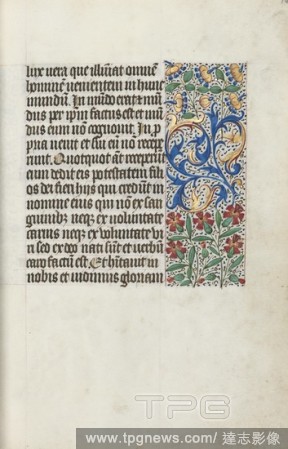 lux vera que illuīat omnē
hominē uenientem in hunc
mundū. In mūdo erat ⁊ mū
dus per ipm̄ factus est et mū
dus eum nō cognouit. In p
pria uenit et sui eū nō rece
erunt. Quotquot aūt receperūt
eum dedit eis potestatem fili
os dei fieri hijs qui credūt in
nomine eius qui nō ex san
guinibꝫ neqꝫ ex uoluntate
carnis neqꝫ ex voluntate v
ri sed ex deo nati sūt et uerbū
caro factū est. Et hītauit in
nobis et uidimus gloriam
TPG
www.tpgnews.com/達志影像